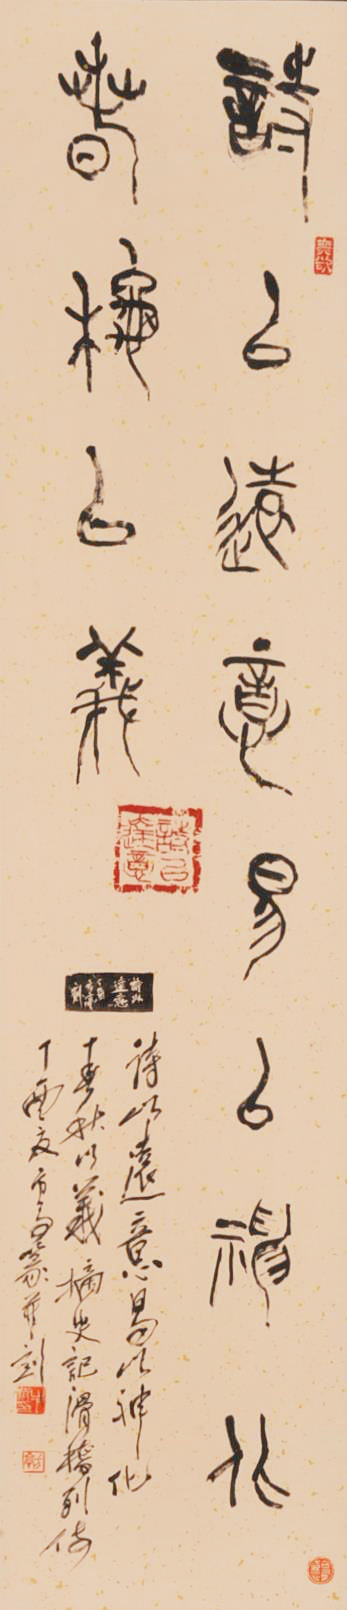 詩以達意易以神化
春秋以義
詩以達意
詩以達意易以神化
春秋以義摘史記滑稽列传
丁酉夏篆并刻